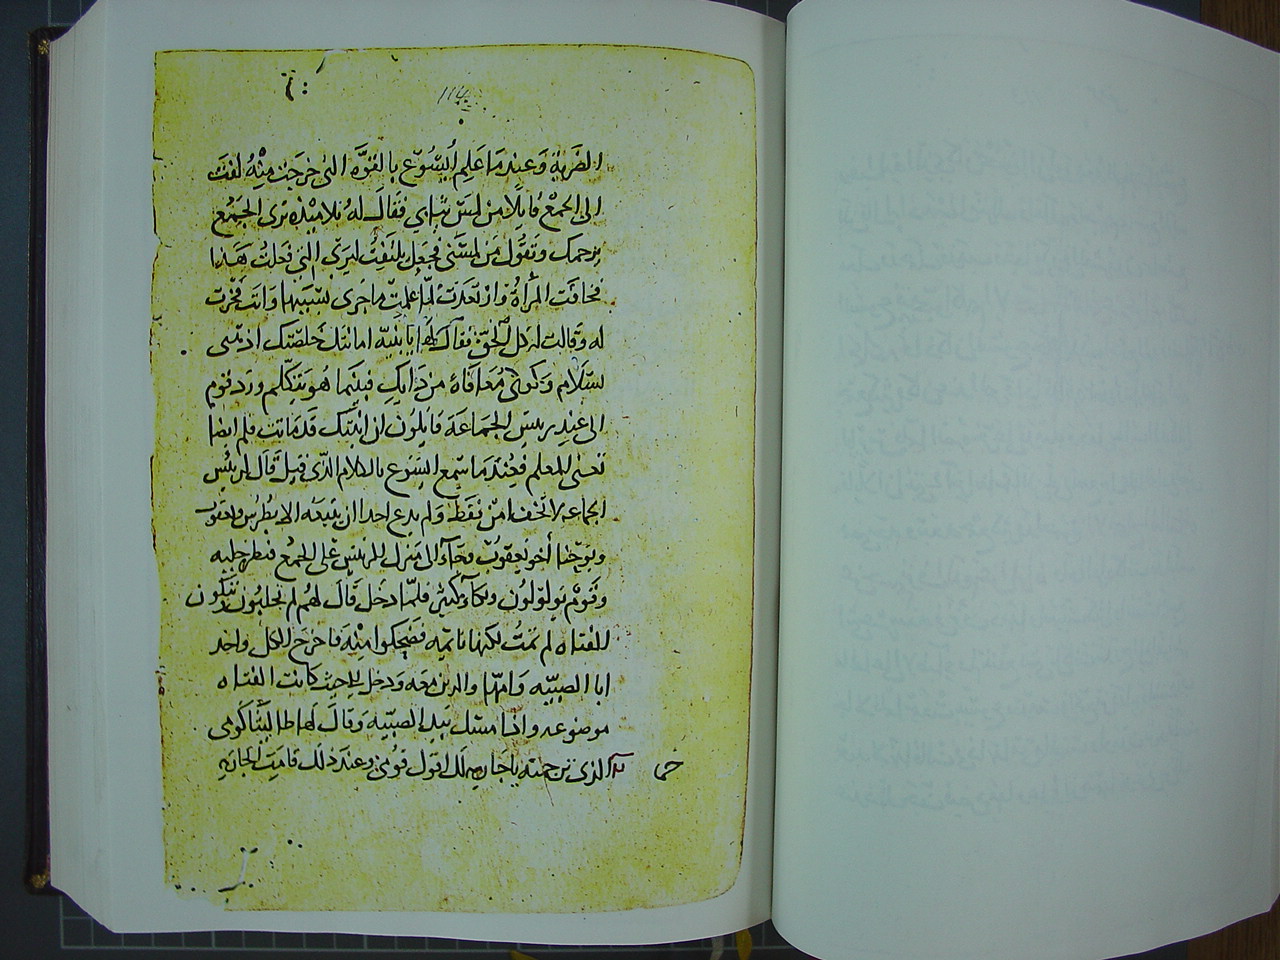 ١١٧
الضربة وعندما علم اليسوع بالقوه التى خرجت منه لفت
الى الجمع قايلا من لمس ثيابي فقال له تلاميذه ترى الجمع
يزحمك وتقول من لمسنى فجعل يلتفت ليرى التى فعلت هذا
فخافت المرأة وارتعدت لما علمت ما جرى بسببها واتت فخرت
له وقالت له كل الحق فقال لها يا بنيه امانتك خلصتك اذهبى
بسلام وكونى معافاة من دايك فبينما هو يتكلم ورد قوم
الى عند ريس الجماعة قايلون ان ابنتك قد ماتت فلم ايضا
تعنى المعلم فعندما سمع اليسوع بالكلام الذى قيل قال لريس
الجماعه لا تخف امن فقط ولم يدع احدا ان يتبعه الا بطرس ويعقوب
ويوحنا أخو يعقوب وجآء الى منزل الريس على الجمع فنظر جلبه
وقوم يولولون وبكآء كثير فلما دخل قال لهم لم تجلبون وتبكون
للفتاه لم تمت لكنها نايمه فضحكوا منه فاخرج الكل واخذ
ابا الصبيه وامها والذين معه ودخل الى حيث كانت الفتاه
موضوعه وانما مسك بيد الصبيه وقال لها طاليثا كومى
الذى ترجمته يا جاريه لك اقول قومى وعند ذلك قامت الجاريه